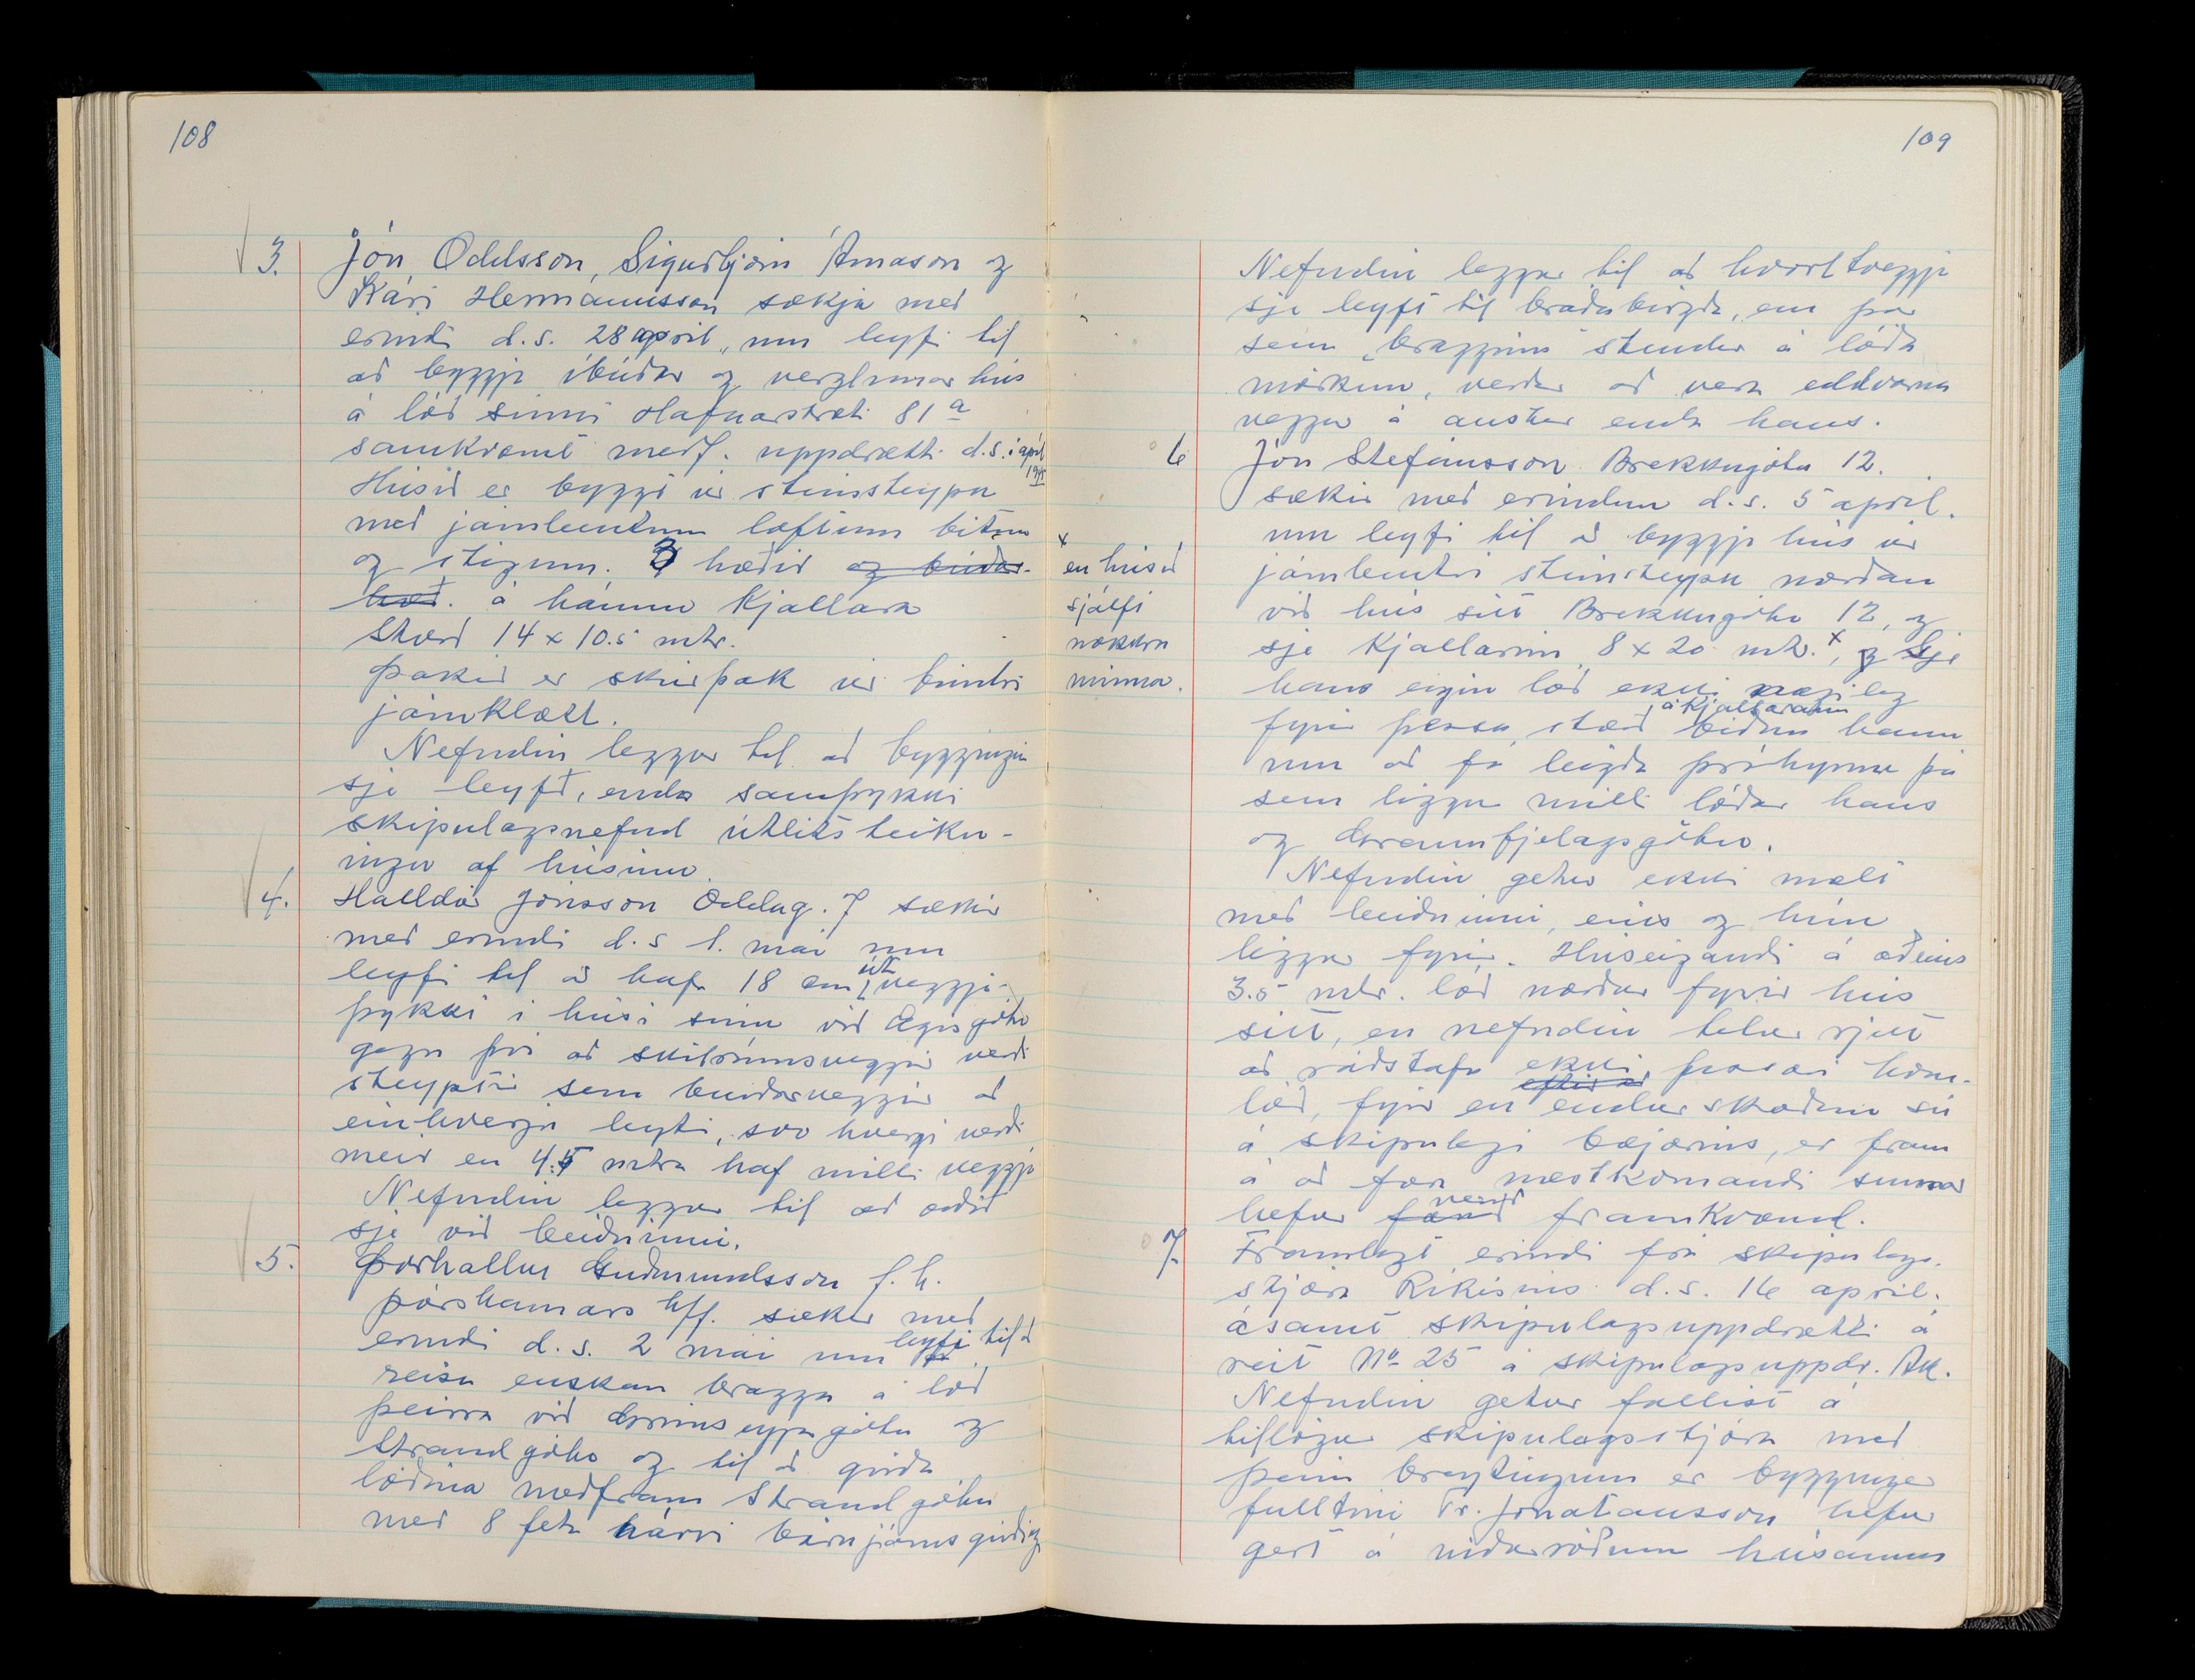 108
3. Jón Oddsson, Sigurbjörn Árnason og
Kári Hermannsson sækja með
erindi d.s. 28 apríl, um leyfi til
að byggja íbúðar og verzlunar hús
á lóð sinni Hafnarstræti 81a
samkvæmt meðf. uppdrætti d.s. í apríl
1945
Húsið er byggt úr steinsteypu
með járnbentum loftum bitum
og stigum. 3 hæðir og búðar-
hæð. á háum kjallara
Stærð 14 x 10.5 mtr.
Þakið er skúrþak úr timbri
járnklætt.
Nefndin leggur til að byggingin
sje leyfð, enda samþykki
skipulagsnefnd útlitsteikn-
ingu af húsinu.
4. Halldór Jónsson Oddag. 7 sækir
með erindi d.s 1. maí um
leyfi til að hafa 18 cm út veggja-
þykkt í húsi sínu við Ægisgötu
gegn því að skilrúmsveggir verði
steyptir sem burðarveggir að
einhverju leyti, svo hvergi verði
meir en 4.5 mtra haf milli veggja
Nefndin leggur til að orðið
sje við beiðninni.
5. Þórhallur Guðmundsson f.h.
Þórshamars h/f. sækir með
erindi d.s. 2 maí um leyfi til að
reisa enskan bragga á lóð
þeirra við Grímseyjargötu og
Strandgötu og til að girða
lóðina meðfram Strandgötu
með 8 feta hárri bárujárnsgirðing
109
Nefndin leggur til að hvorttveggja
sje leyft til bráðabirgða, en þar
sem bragginn stendur á lóða
mörkum, verður að vera eldvarna
veggur á austur enda hans.
6 Jón Stefánsson Brekkugötu 12.
sækir með erindum d.s. 5 apríl.
um leyfi til að byggja hús úr
járnbentri steinsteypu norðan
við hús sitt Brekkugötu 12, og
sje kjallarinn 8 x 20 mtr. x, og sje
x
en húsið
sjálft
nokkru
minna.
hans eigin lóð ekki nægileg
fyrir þessa stærð á kjallaranum biður hann
um að fá leigða þríhyrnu þá
sem liggur milli lóðar hans
og Gránufjelagsgötu.
Nefndin getur ekki mælt
með beiðninni, eins og hún
liggur fyrir. Húseigandi á aðeins
3.5 mtr. lóð norður fyrir hús
sitt, en nefndin telur rjett
að ráðstafa ekki þessari horn-
lóð, fyr en eftir að endurskoðun sú
á skipulagi bæjarins, er fram
á að fara næstkomandi sumar
hefur farið verið framkvæmd.
7. Framlagt erindi frá skipulags-
stjóra Ríkisins d.s. 16 apríl.
ásamt skipulagsuppdrætti á
reit No 25 á skipulagsuppdr. Ak.
Nefndin getur fallist á
tillögur skipulagsstjóra með
þeim breytingum er bygginga
fulltrúi Tr. Jónatansson hefur
gert á niðurröðun húsanna